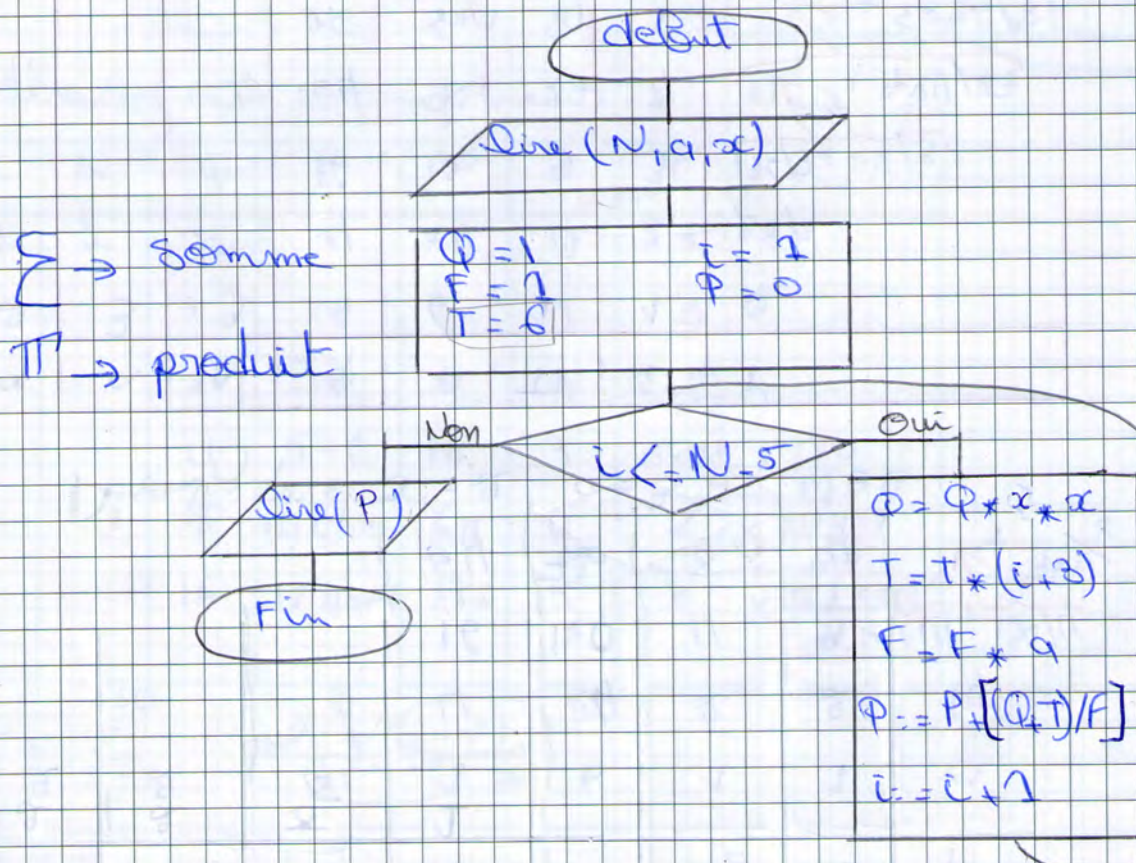 debut
lire (N, a, x)
Σ → Somme
π → produit
Q = 1 i = 1
F = 1 P = 0
T = 6
Non
i <= N - 5
Oui
lire(P)
Fin
Q = Q * x * x
T = T * (i + 3)
F = F * a
P := P + [(Q+T)/F]
i := i + 1